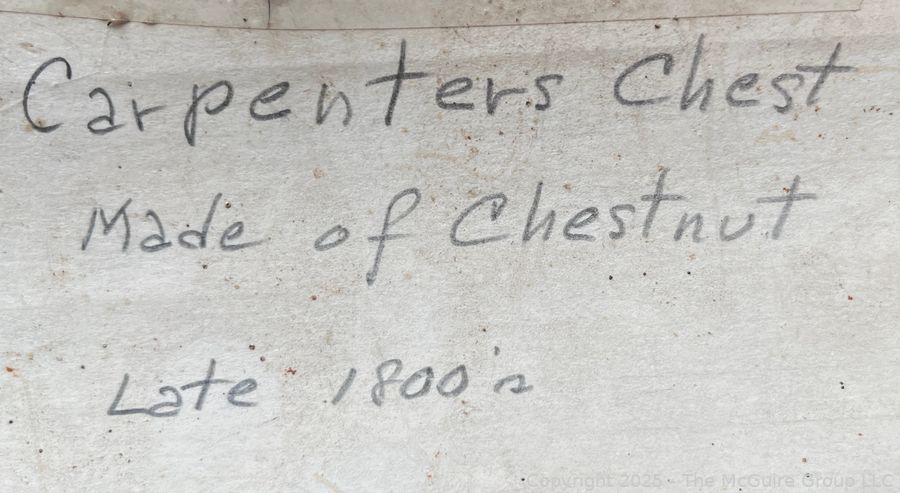 Carpenters Chest
Made of Chestnut
Late 1800's
Copyright 2025 - The McGuire Group LLC